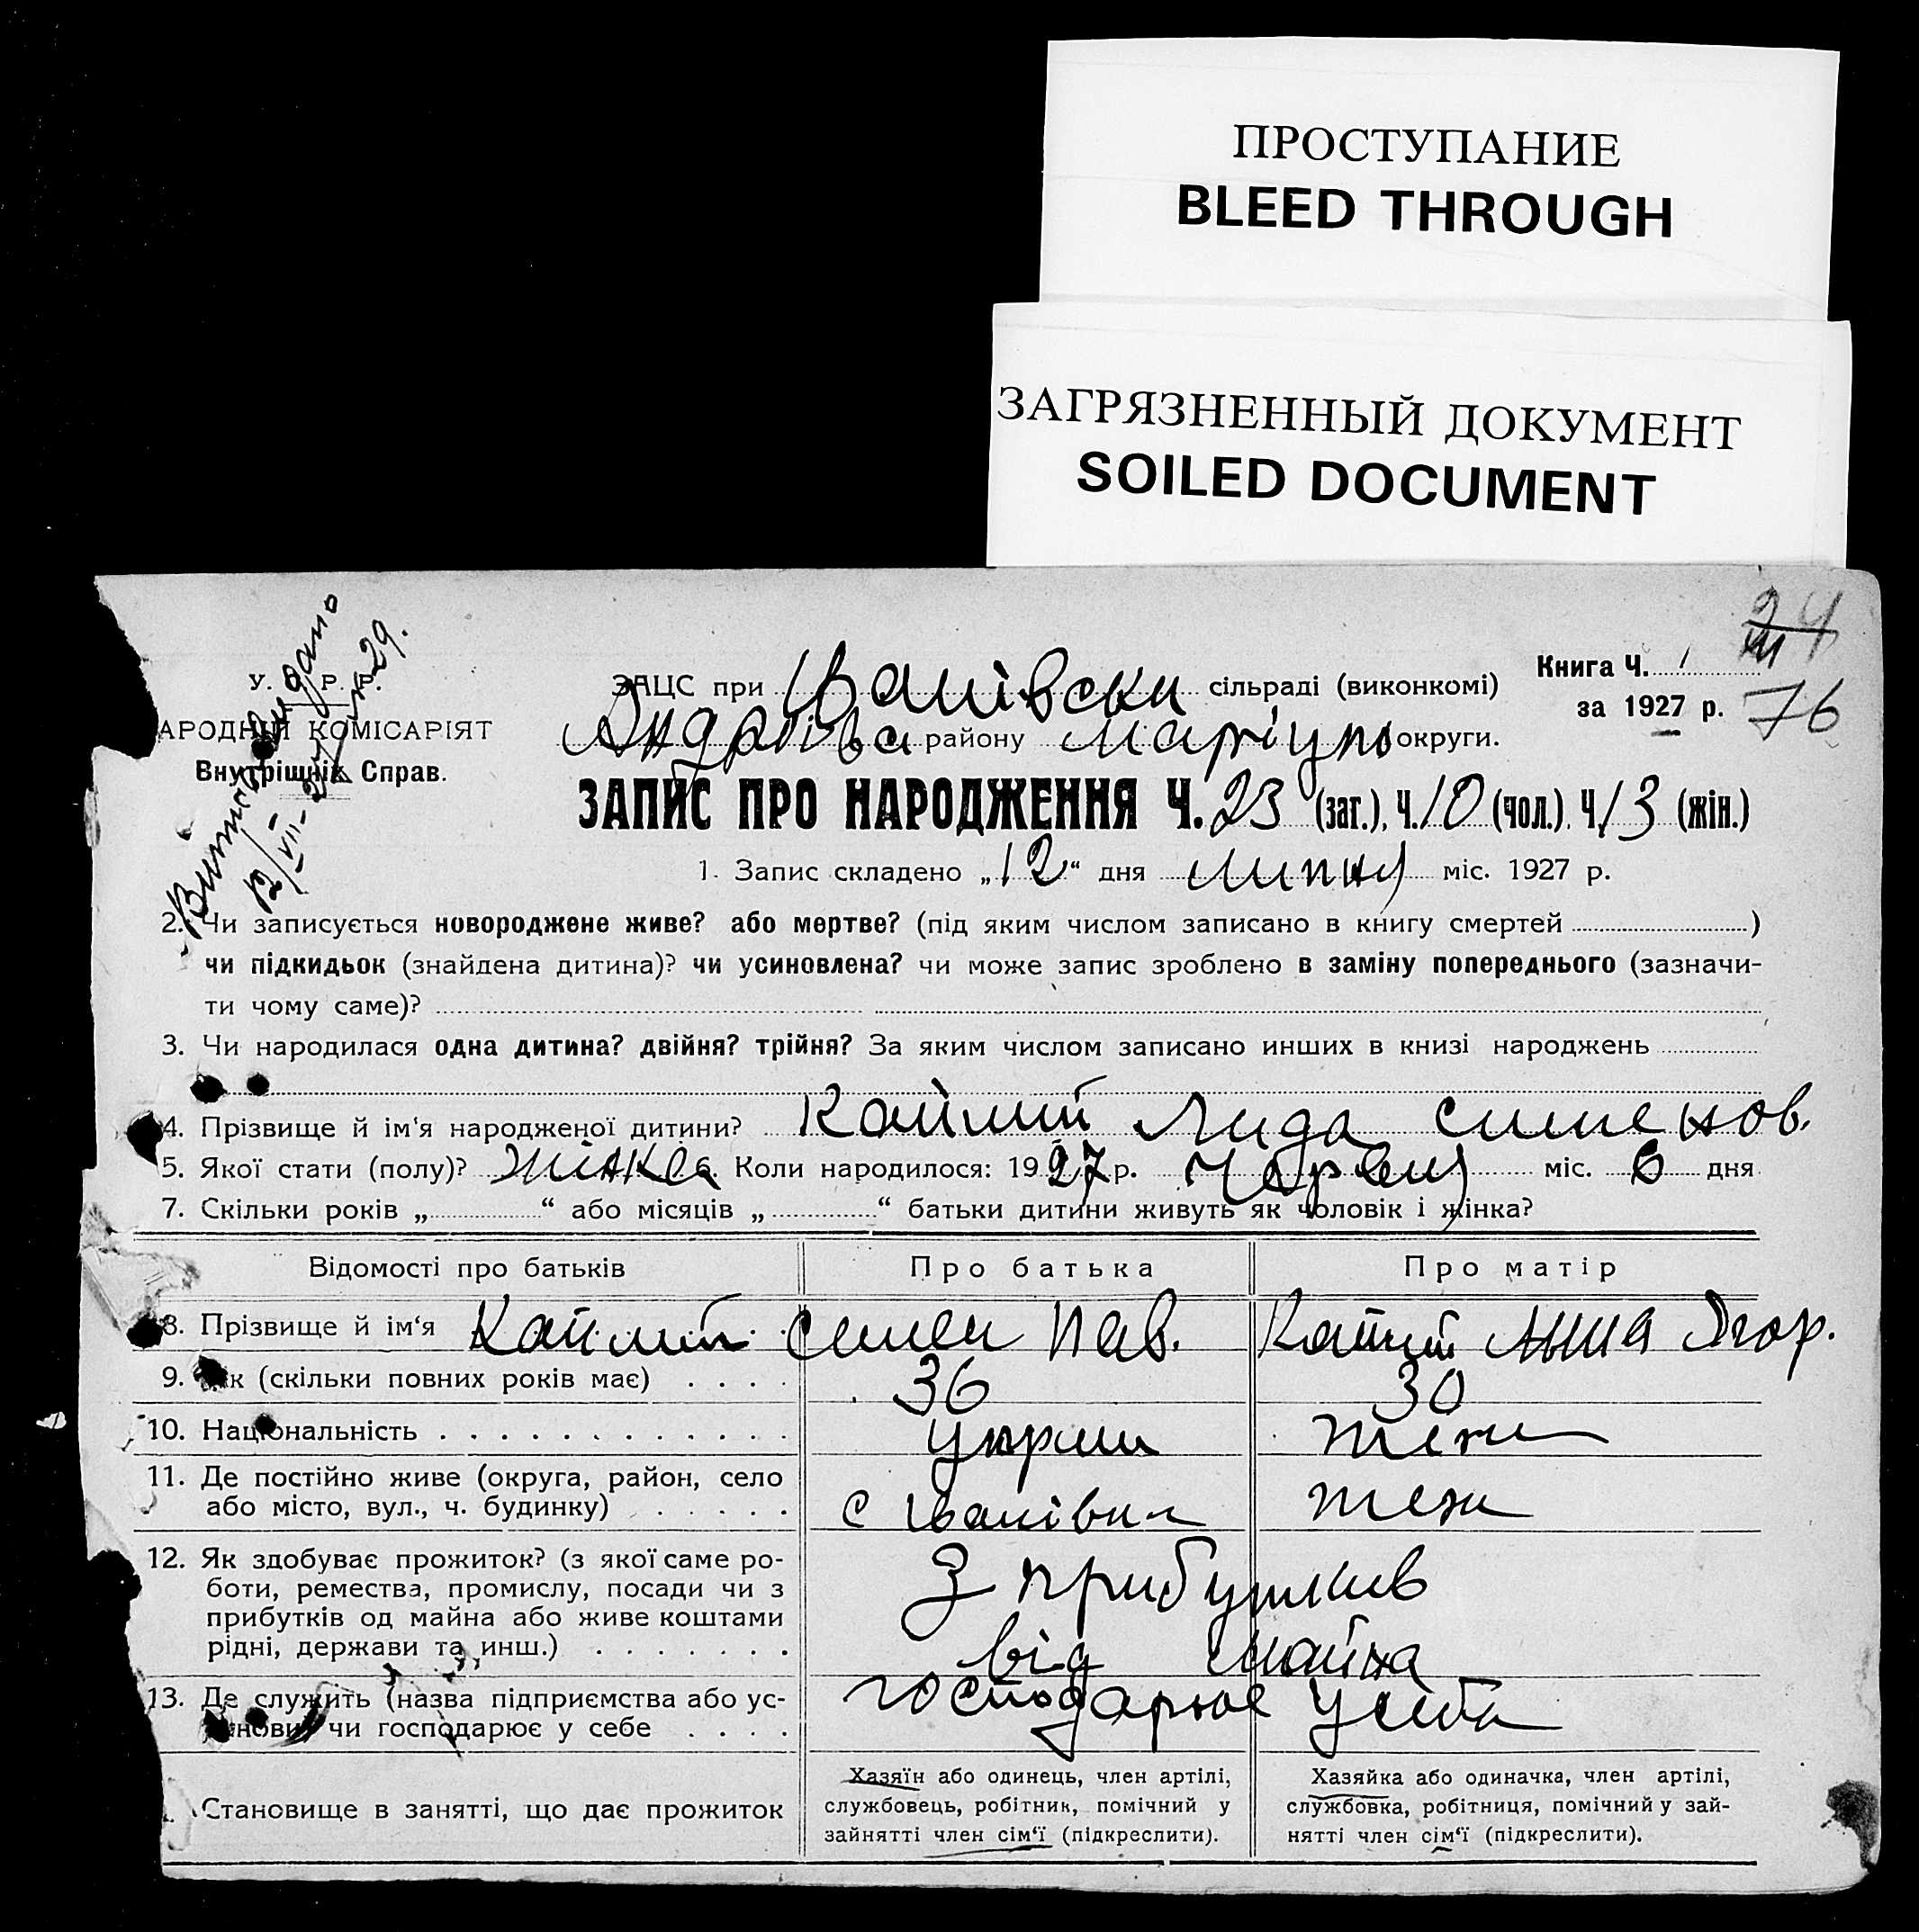 ПРОСТУПАНИЕ
BLEED THROUGH
ЗАГРЯЗНЕННЫЙ ДОКУМЕНТ
SOILED DOCUMENT
24
76
Книга Ч. 1
за 1927 р.
У. С. Р. Р.
АРОДНІЙ КОМІСАРІЯТ
Внутрішніх Справ.
ЗАЦС при Іванівски сільраді (виконкомі)
Андріївс району Маріуп округи.
ЗАПИС ПРО НАРОДЖЕННЯ Ч. 23 (заг.), Ч. 10 (чол.), Ч. 13 (жін.)
1. Запис складено „12“ дня липня міс. 1927 р.
2. Чи записується новороджене живе? або мертве? (під яким числом записано в книгу смертей )
чи підкидьок (знайдена дитина)? чи усиновлена? чи може запис зроблено в заміну попереднього (зазначи-
ти чому саме)?
3. Чи народилася одна дитина? двійня? трійня? За яким числом записано инших в книзі народжень
4. Прізвище й ім‘я народженої дитини? Лида
5. Якої стати (полу)? жінка 6. Коли народилося: 1927 р. Червня міс. 6 дня
7. Скільки років „ “ або місяців „ “ батьки дитини живуть як чоловік і жінка?
Відомості про батьків Про батька Про матір
8. Прізвище й ім‘я Семен Пав. Анна Ягор.
9. Вік (скільки повних років має) 36 30
10. Національність теж
11. Де постійно живе (округа, район, село
або місто, вул., ч. будинку) с Іванівка теж
12. Як здобуває прожиток? (з якої саме ро-
боти, ремества, промислу, посади чи з
прибутків од майна або живе коштами
рідні, держави та инш.)
З прибутків
від майна
13. Де служить (назва підприємства або ус-
танови) чи господарює у себе
господарює у себе
Становище в занятті, що дає прожиток
Хазяїн або одинець, член артілі,
службовець, робітник, помічний у
зайнятті член сім‘ї (підкреслити).
Хазяйка або одиначка, член артілі,
службовка, робітниця, помічний у зай-
нятті член сім‘ї (підкреслити).